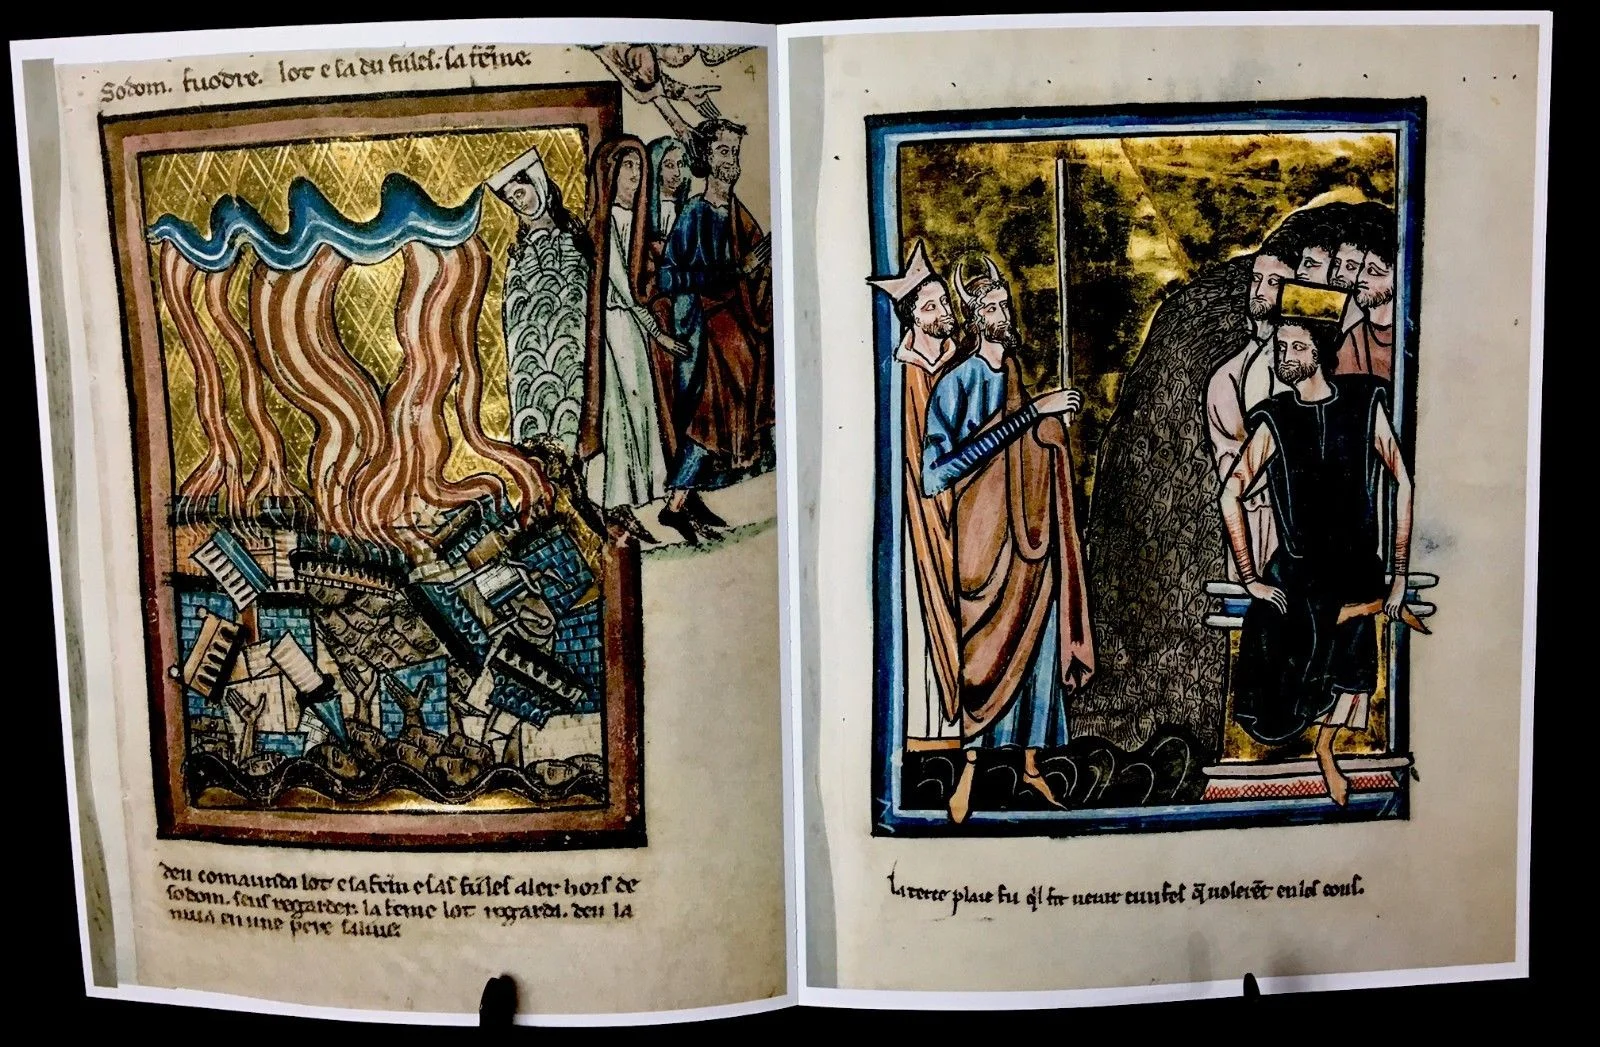 Sodom. fuodre. lot e sa du filles. la feme.
4
deu comaunda lot e sa fem e sas filles aler hors de
sodom. sens regarder. la feme lot regarda. deu la
mua en une pere
la terce plaie fu ql fit venir